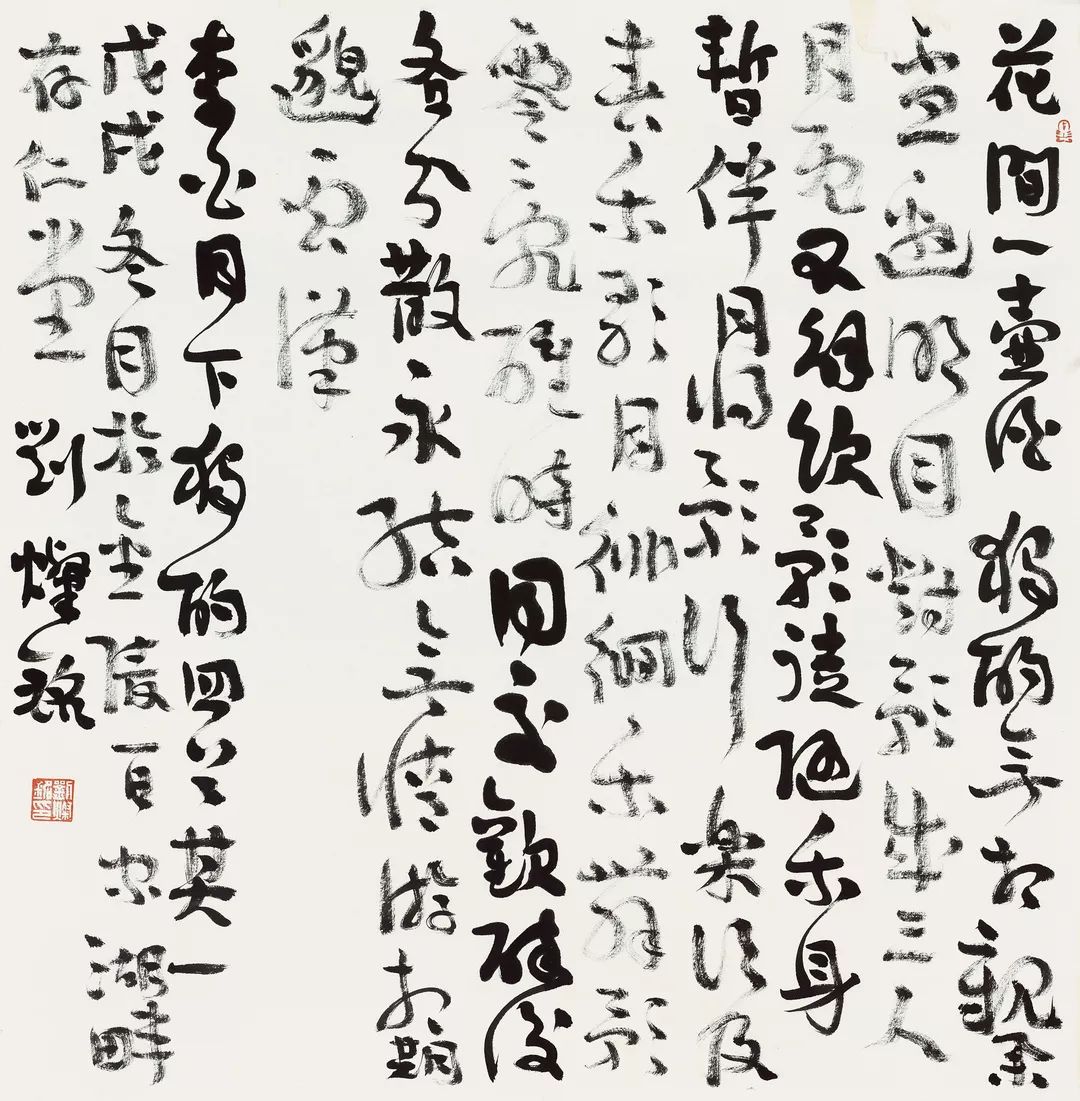 花間一壺酒獨酌無相親舉
盃邀明月對影成三人
月既不解飲影徒隨我身
暫伴月將影行樂須及
春我歌月徘徊我舞影
零亂醒時同交歡醉後
各分散永結無情游相期
邈雲漢
李白月下獨酌四首其一
戊戌冬月於金陵百家湖畔
存仁堂 劉燦銘
劉燦銘印